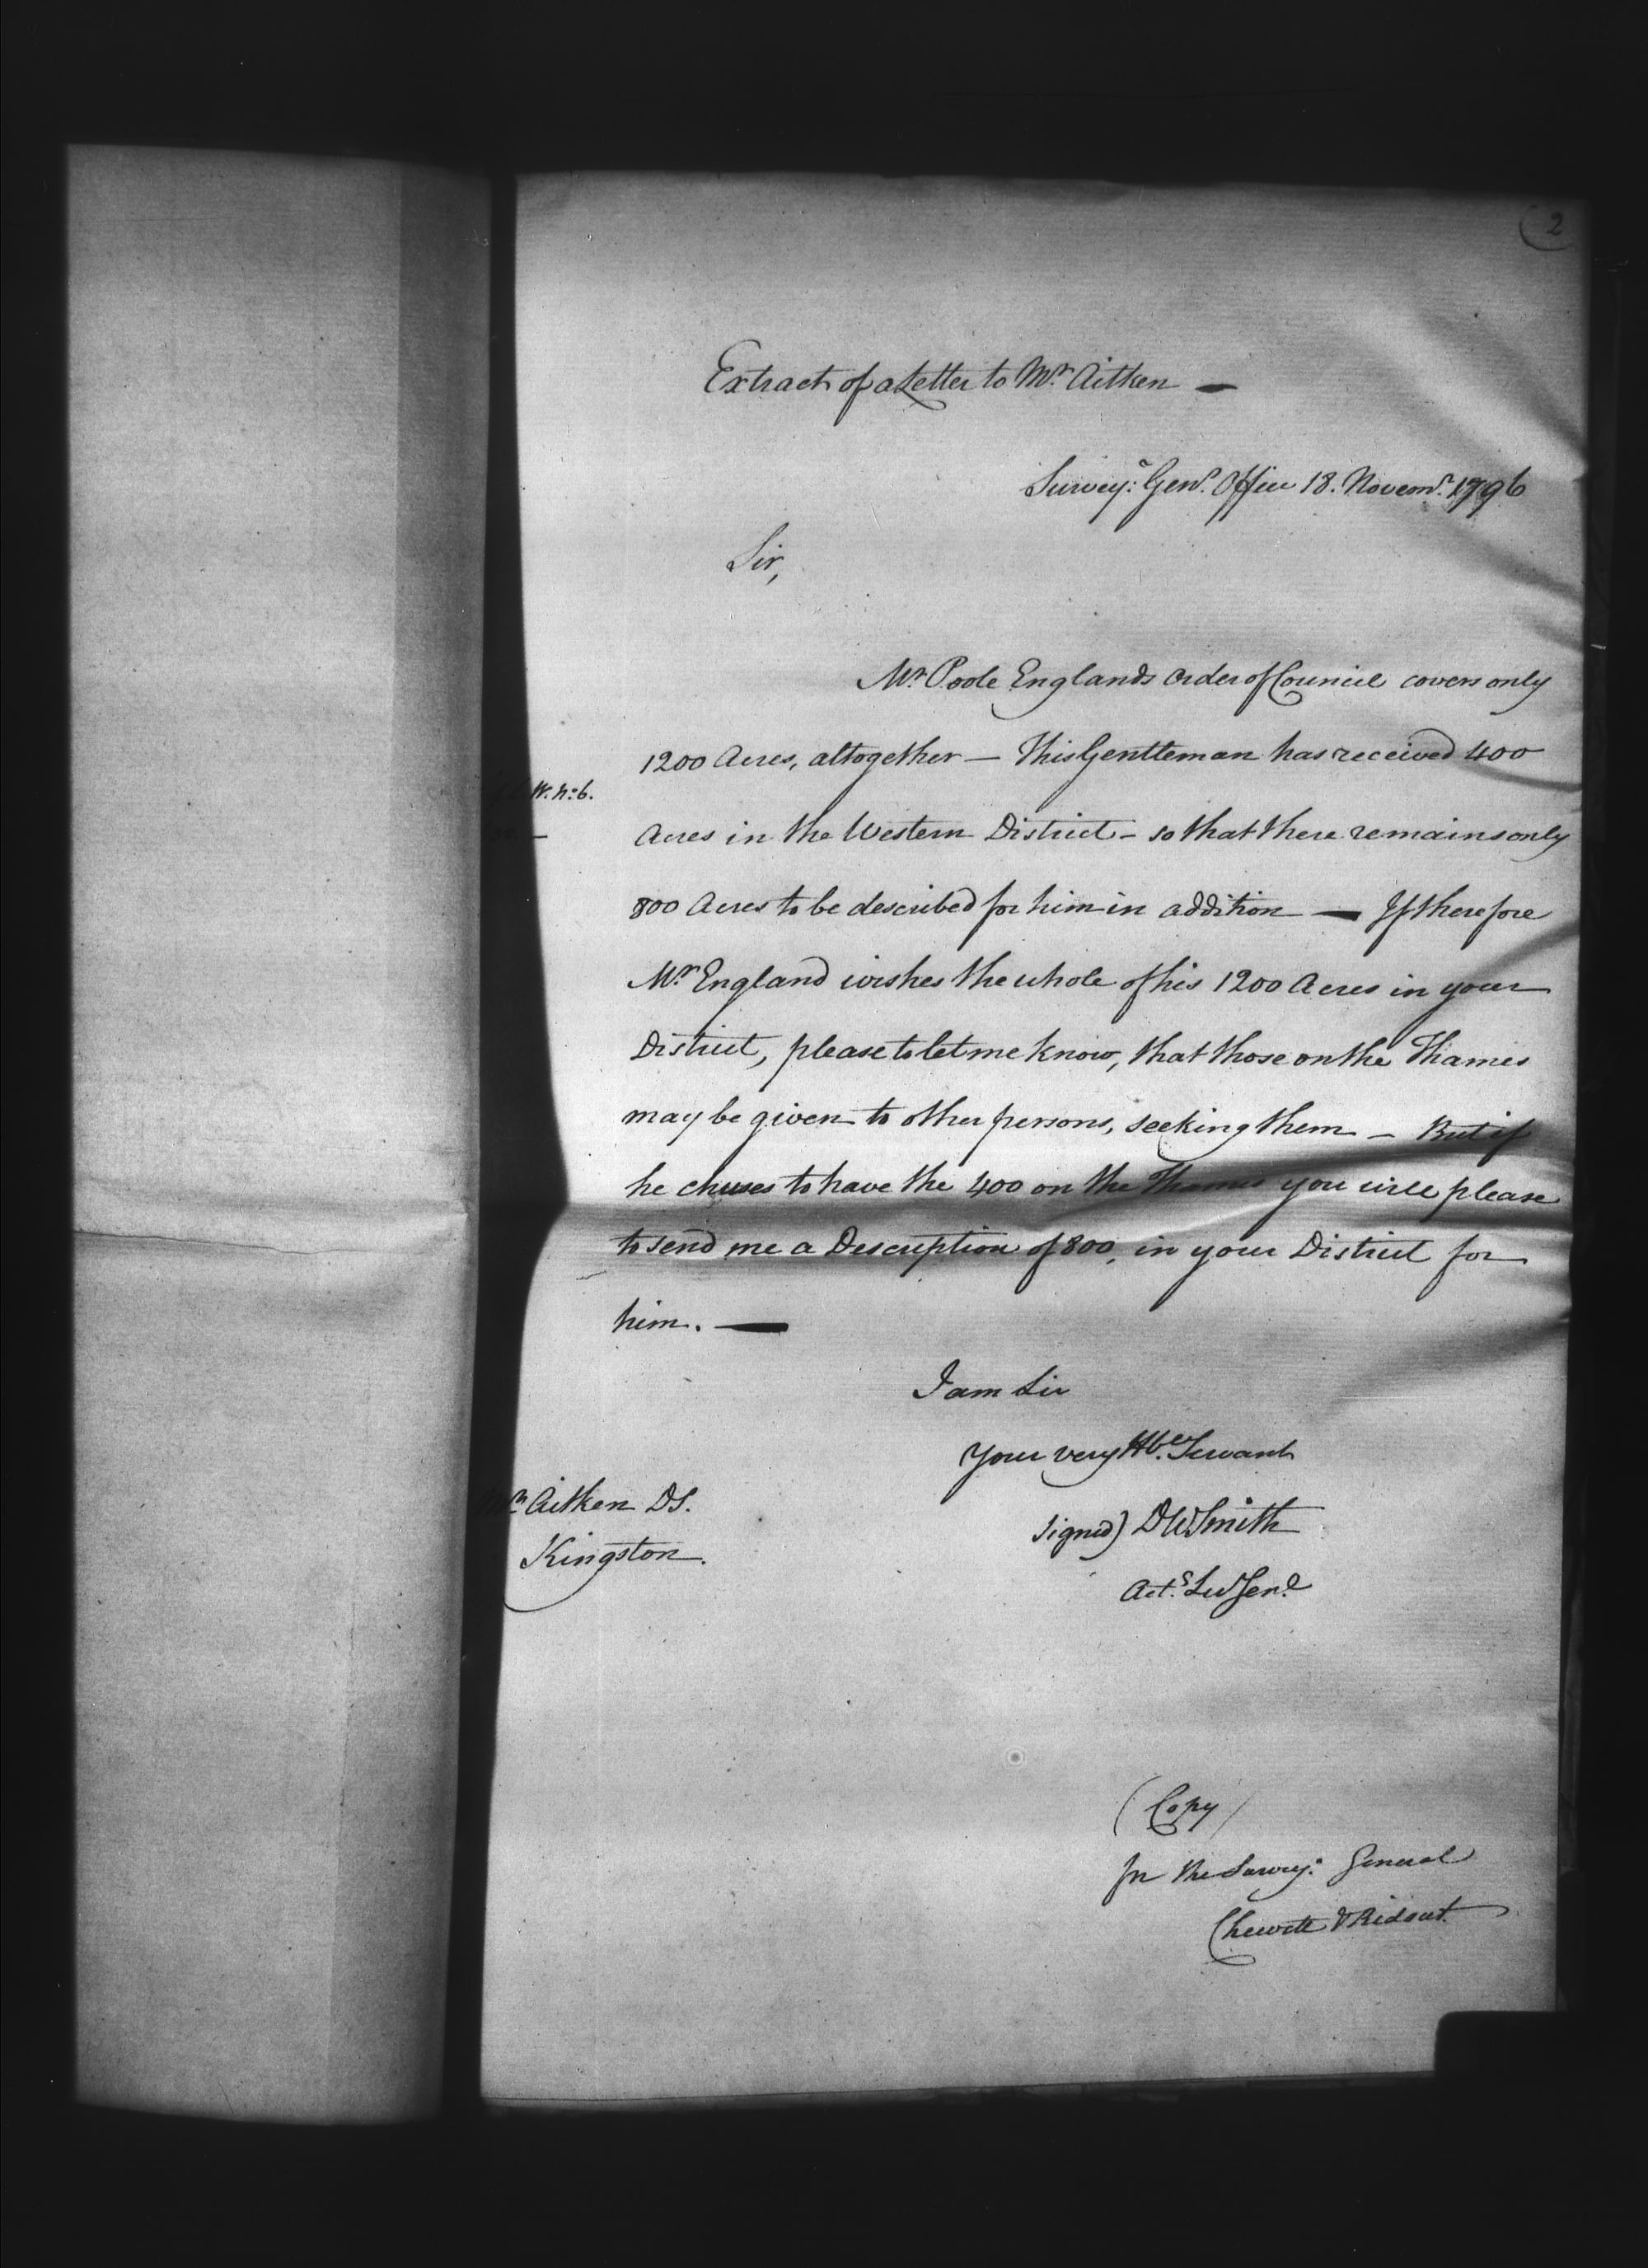 2
Extract of a Letter to Mr. Aitken —
Survey:r Genl. Office 18. Novemr. 1796
Sir,
Mr. Poole Englands Order of Council covers only
1200 Acres, altogether — This Gentleman has received 400
W. no: 6.
Acres in the Western District - so that there remains only
800 Acres to be described for him in addition — If therefore
Mr. England wishes the whole of his 1200 Acres in your
District, please to let me know, that those on the Thames
may be given to other persons, seeking them — But if
he chuses to have the 400 on the Thames you will please
to send me a Description of 800, in your District for
him. —
I am Sir
Your very Hble. Servant
Signed) DWSmith
Actg. Sur Genl.
Mr. Aitken DS.
Kingston.
(Copy)
for the Survey:r General
Chewett & Ridout.